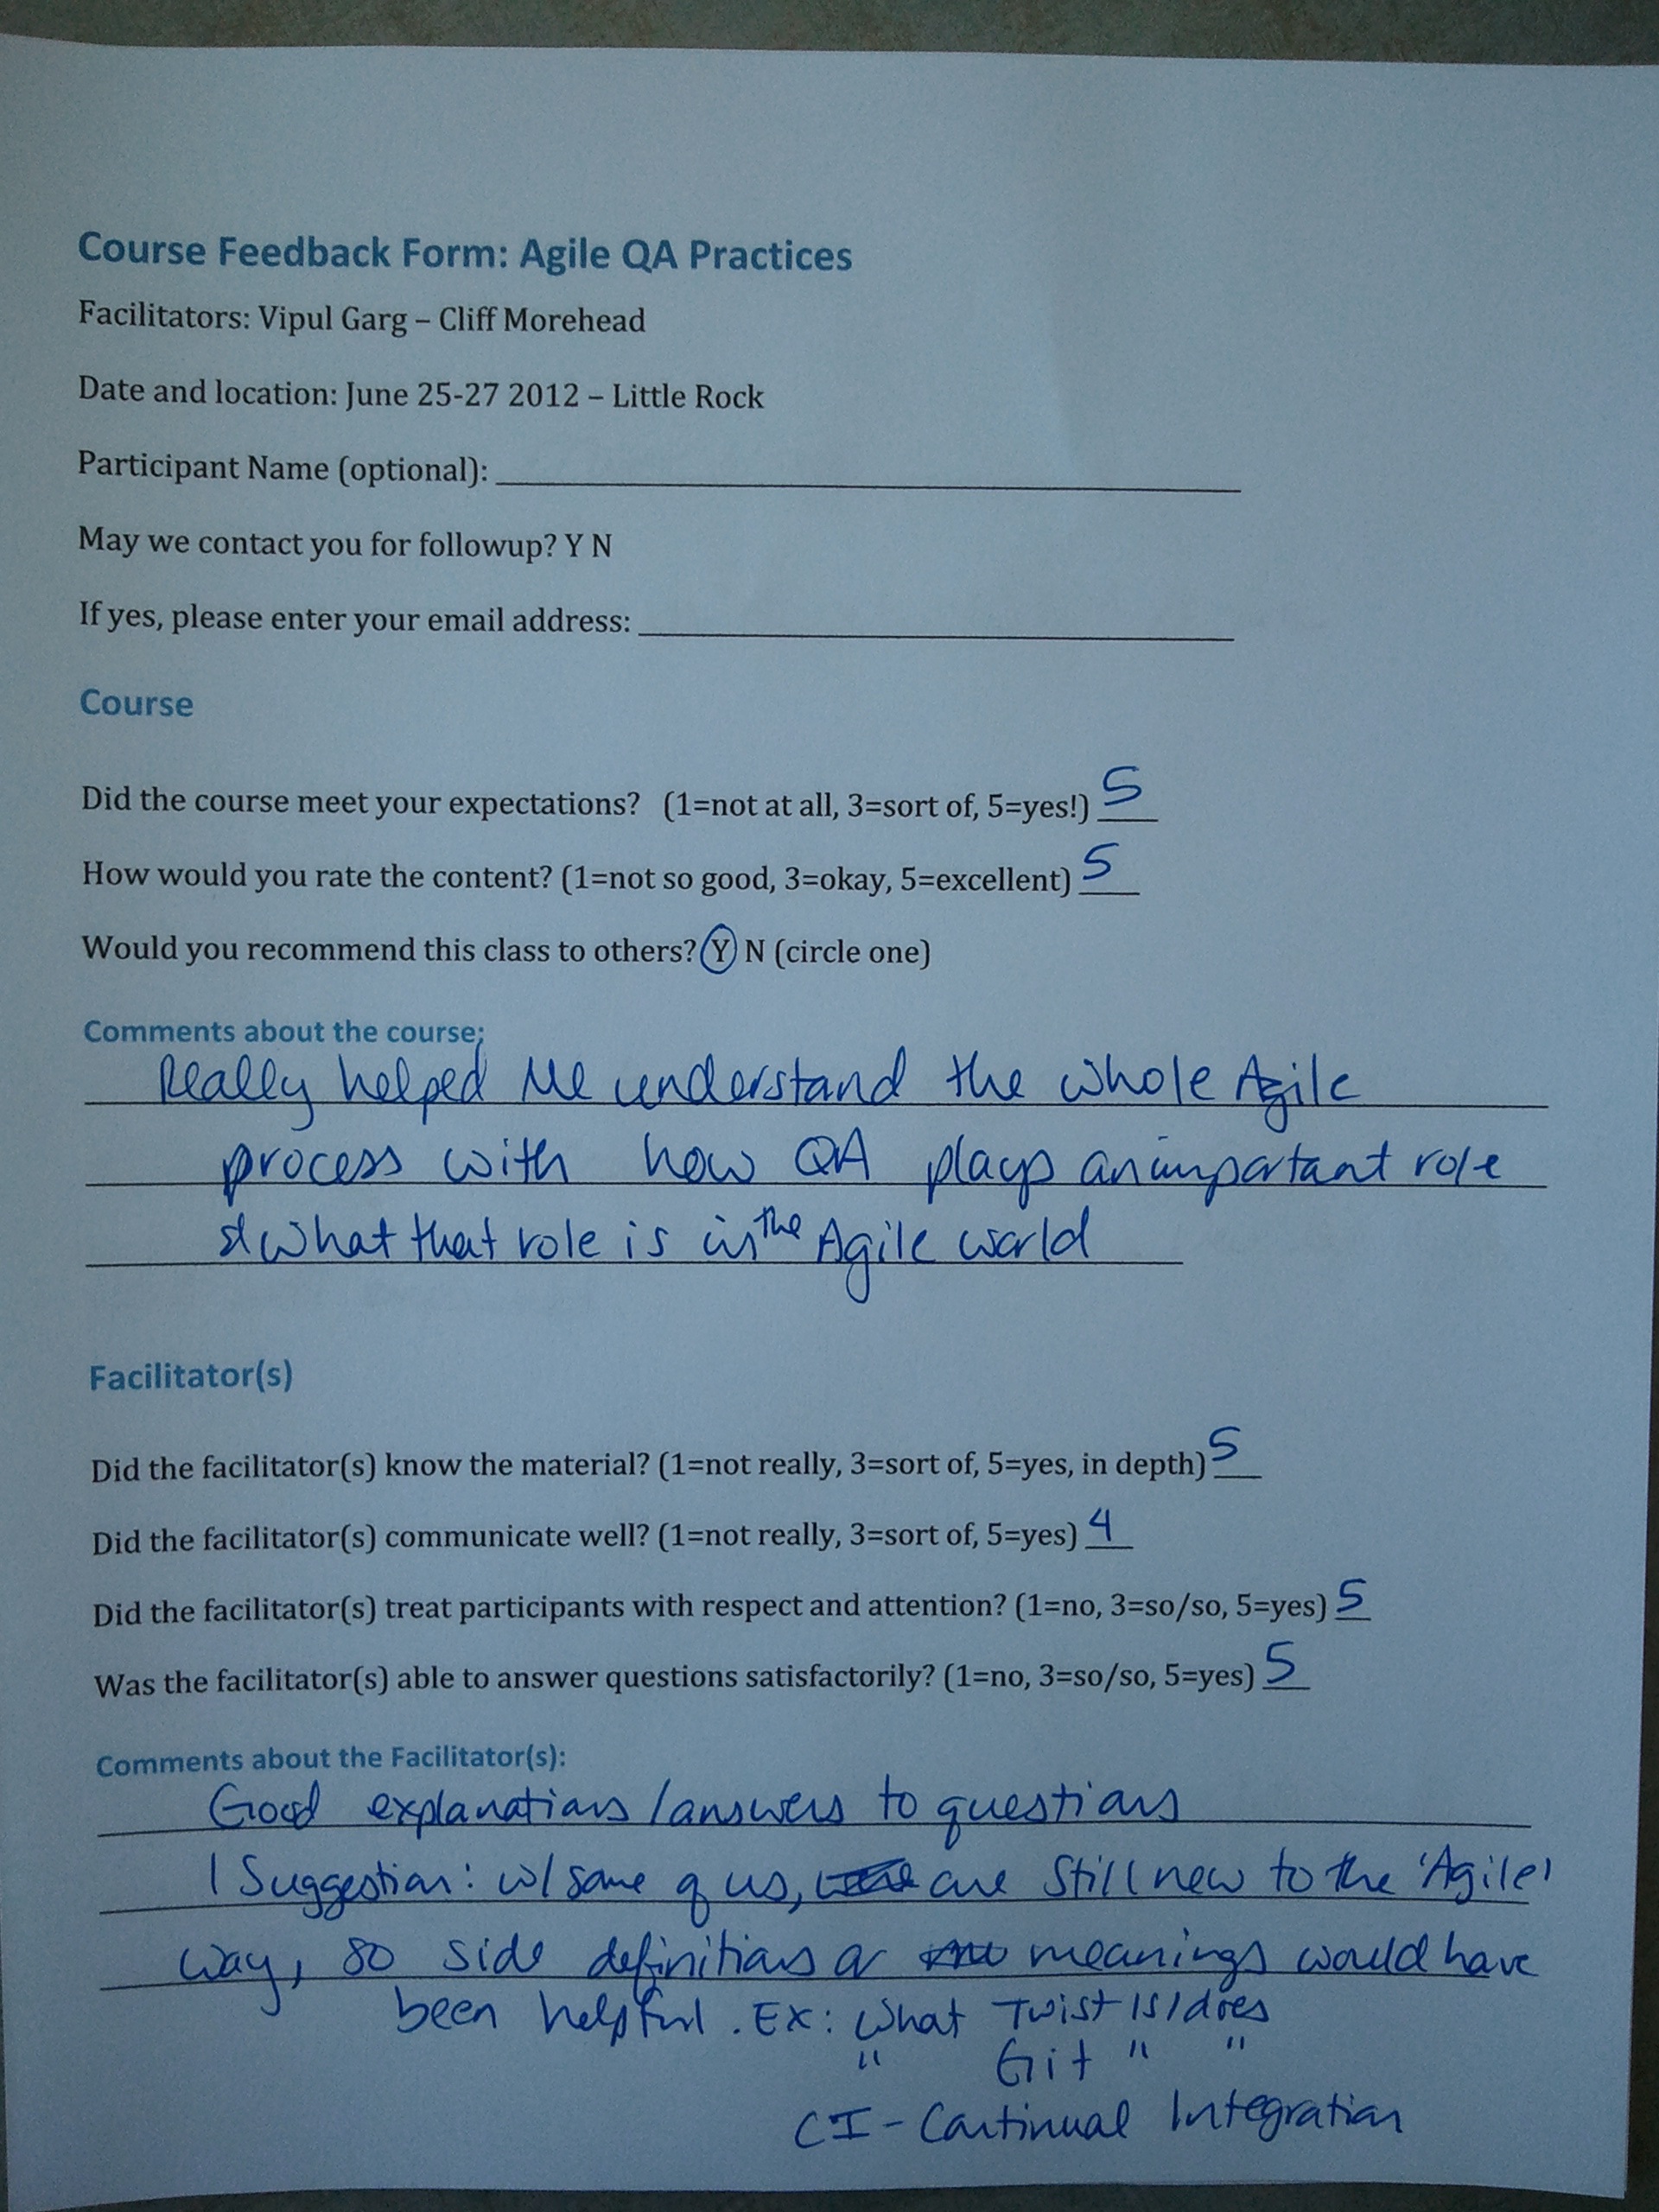 Course Feedback Form: Agile QA Practices
Facilitators: Vipul Garg – Cliff Morehead
Date and location: June 25-27 2012 – Little Rock
Participant Name (optional):
May we contact you for followup? Y N
If yes, please enter your email address:
Course
Did the course meet your expectations? (1=not at all, 3=sort of, 5=yes!) 5
How would you rate the content? (1=not so good, 3=okay, 5=excellent) 5
Would you recommend this class to others? Y N (circle one)
Comments about the course:
Really helped me understand the whole Agile
process with how QA plays an important role
& what that role is in the Agile world
Facilitator(s)
Did the facilitator(s) know the material? (1=not really, 3=sort of, 5=yes, in depth) 5
Did the facilitator(s) communicate well? (1=not really, 3=sort of, 5=yes) 4
Did the facilitator(s) treat participants with respect and attention? (1=no, 3=so/so, 5=yes) 5
Was the facilitator(s) able to answer questions satisfactorily? (1=no, 3=so/so, 5=yes) 5
Comments about the Facilitator(s):
Good explanations/answers to questions
1 Suggestion: w/ some of us, are still new to the 'Agile'
way, so side definitions or meanings would have
been helpful. EX: What Twist is/does
" Git " "
CI - Continual Integration